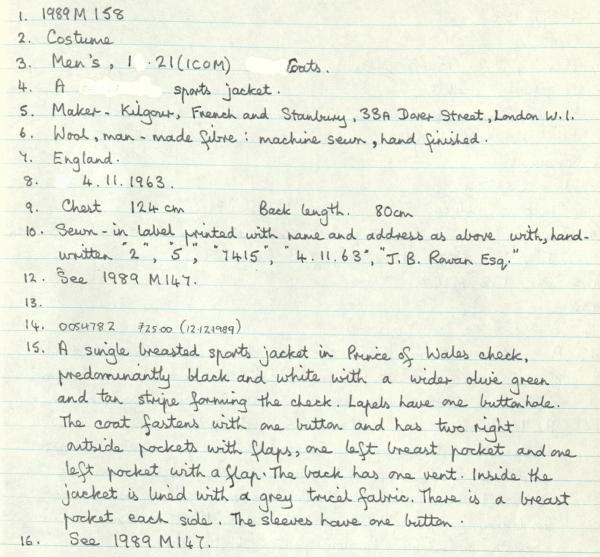 1. 1989 M 158
2. Costume
3. Men's, 1 .21 (ICOM) Coats.
4. A sports jacket.
5. Maker - Kilgour, French and Stanbury, 33A Dover Street, London W.1.
6. Wool, man-made fibre: machine sewn, hand finished.
7. England.
8. 4.11.1963.
9. Chest 124 cm Back length. 80cm
10. Sewn-in label printed with name and address as above with, hand-
written "2", "5", "7415", "4.11.63", "J. B. Rowan Esq."
12. See 1989 M147.
13.
14. 0054782 72500 (12.12.1989)
15. A single breasted sports jacket in Prince of Wales check,
predominantly black and white with a wider olive green
and tan stripe forming the check. Lapels have one buttonhole.
The coat fastens with one button and has two right
outside pockets with flaps, one left breast pocket and one
left pocket with a flap. The back has one vent. Inside the
jacket is lined with a grey tricel fabric. There is a breast
pocket each side. The sleeves have one button.
16. See 1989 M147.